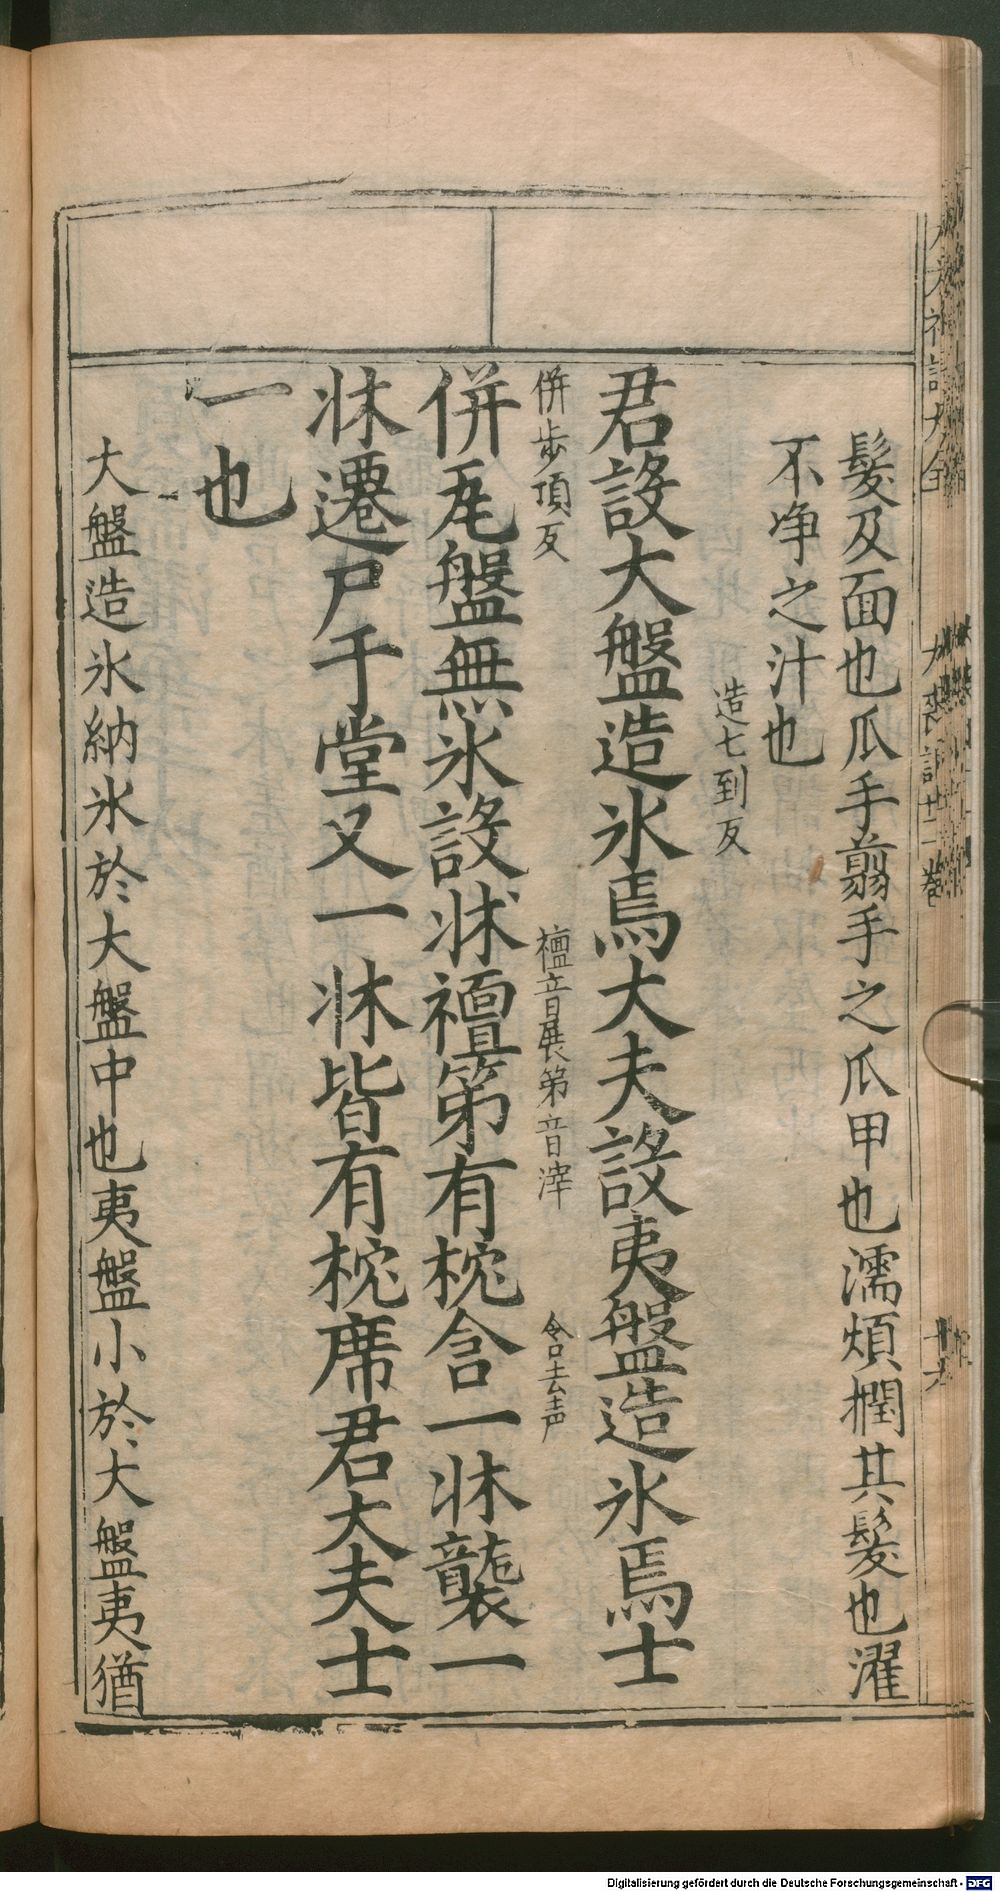 髮及面也爪手翦手之爪甲也濡煩撋其髮也濯
不淨之汁也
造七到反
君設大盤造氷焉大夫設夷盤造氷焉士
併步項反
襢音展第音滓
含去声
併瓦盤無氷設牀襢第有枕含一牀襲一
牀遷尸于堂又一牀皆有枕席君大夫士
一也
大盤造氷納氷於大盤中也夷盤小於大盤夷猶
Digitalisierung gefördert durch die Deutsche Forschungsgemeinschaft - DFG